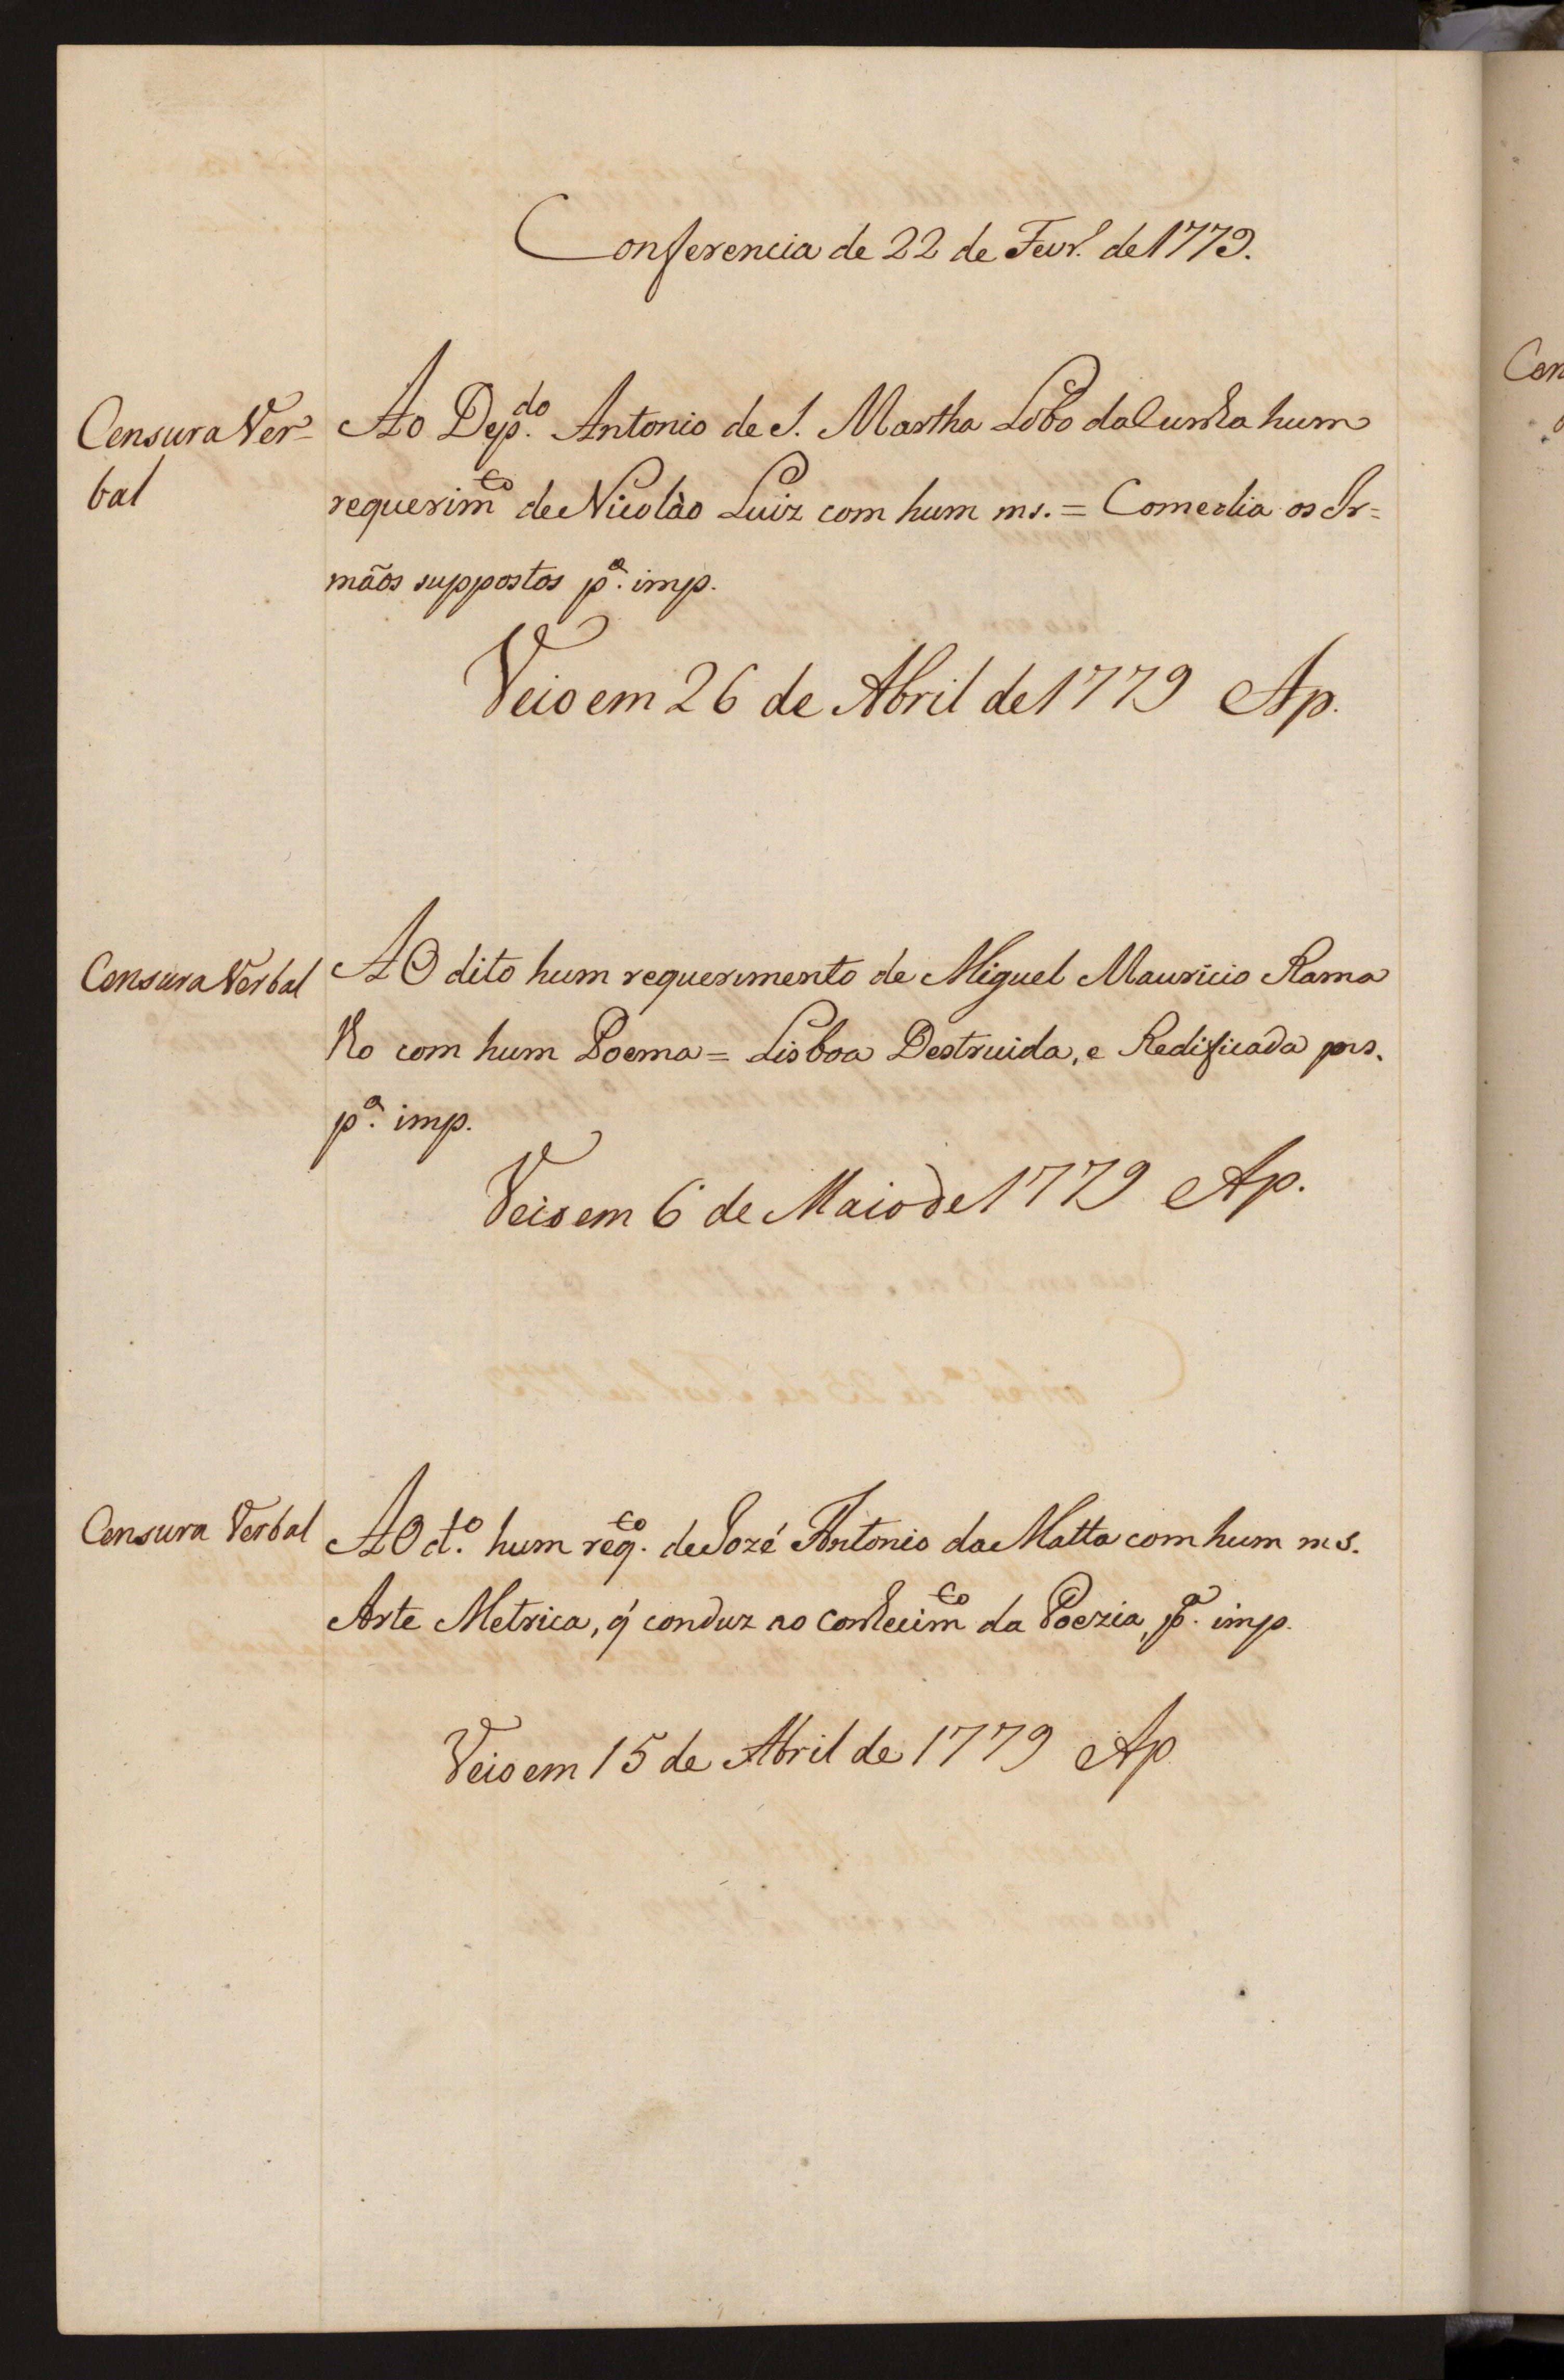 Conferencia de 22 de Fevr.º de 1779.
Censura Ver=
bal
Ao Dep.do Antonio de S. Martha Lobo da Cunha hum
requerim.to de Nicolào Luiz com hum ms. = Comedia os Ir=
mãos suppostos p.ª imp.
Veio em 26 de Abril de 1779 Ap.
Censura Verbal
Ao dito hum requerimento de Miguel Mauricio Rama
lho com hum Poema = Lisboa Destruida, e Redificada ms.
p.ª imp.
Veio em 6 de Maio de 1779 Ap.
Censura Verbal
Ao d.º hum req.to de Jozé Antonio da Matta com hum ms.
Arte Metrica, q̃ conduz ao conhecim.to da Poezia, p.ª imp.
Veio em 15 de Abril de 1779 Ap